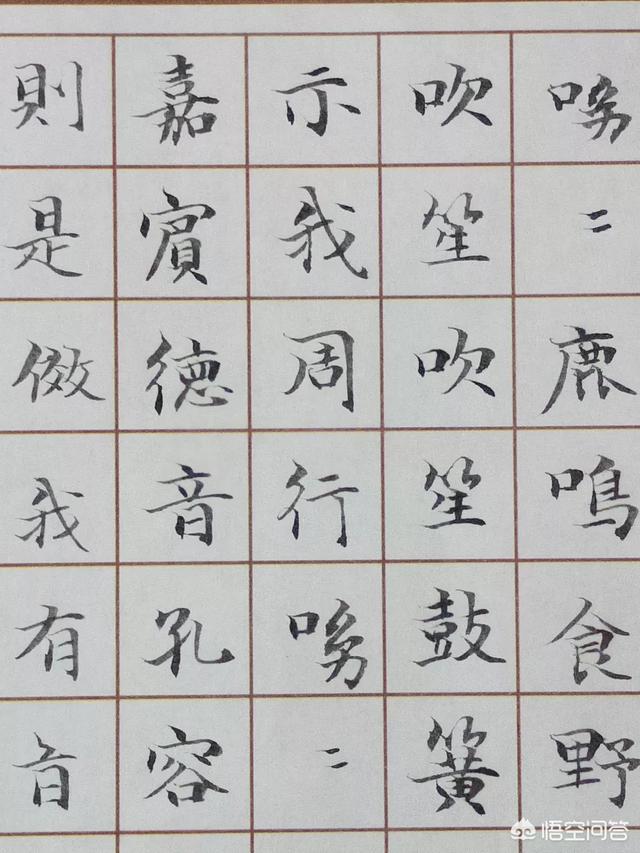 呦〻鹿鳴食野
吹笙吹笙鼓簧
示我周行呦〻
嘉賓德音孔容
則是傚我有旨
悟空问答